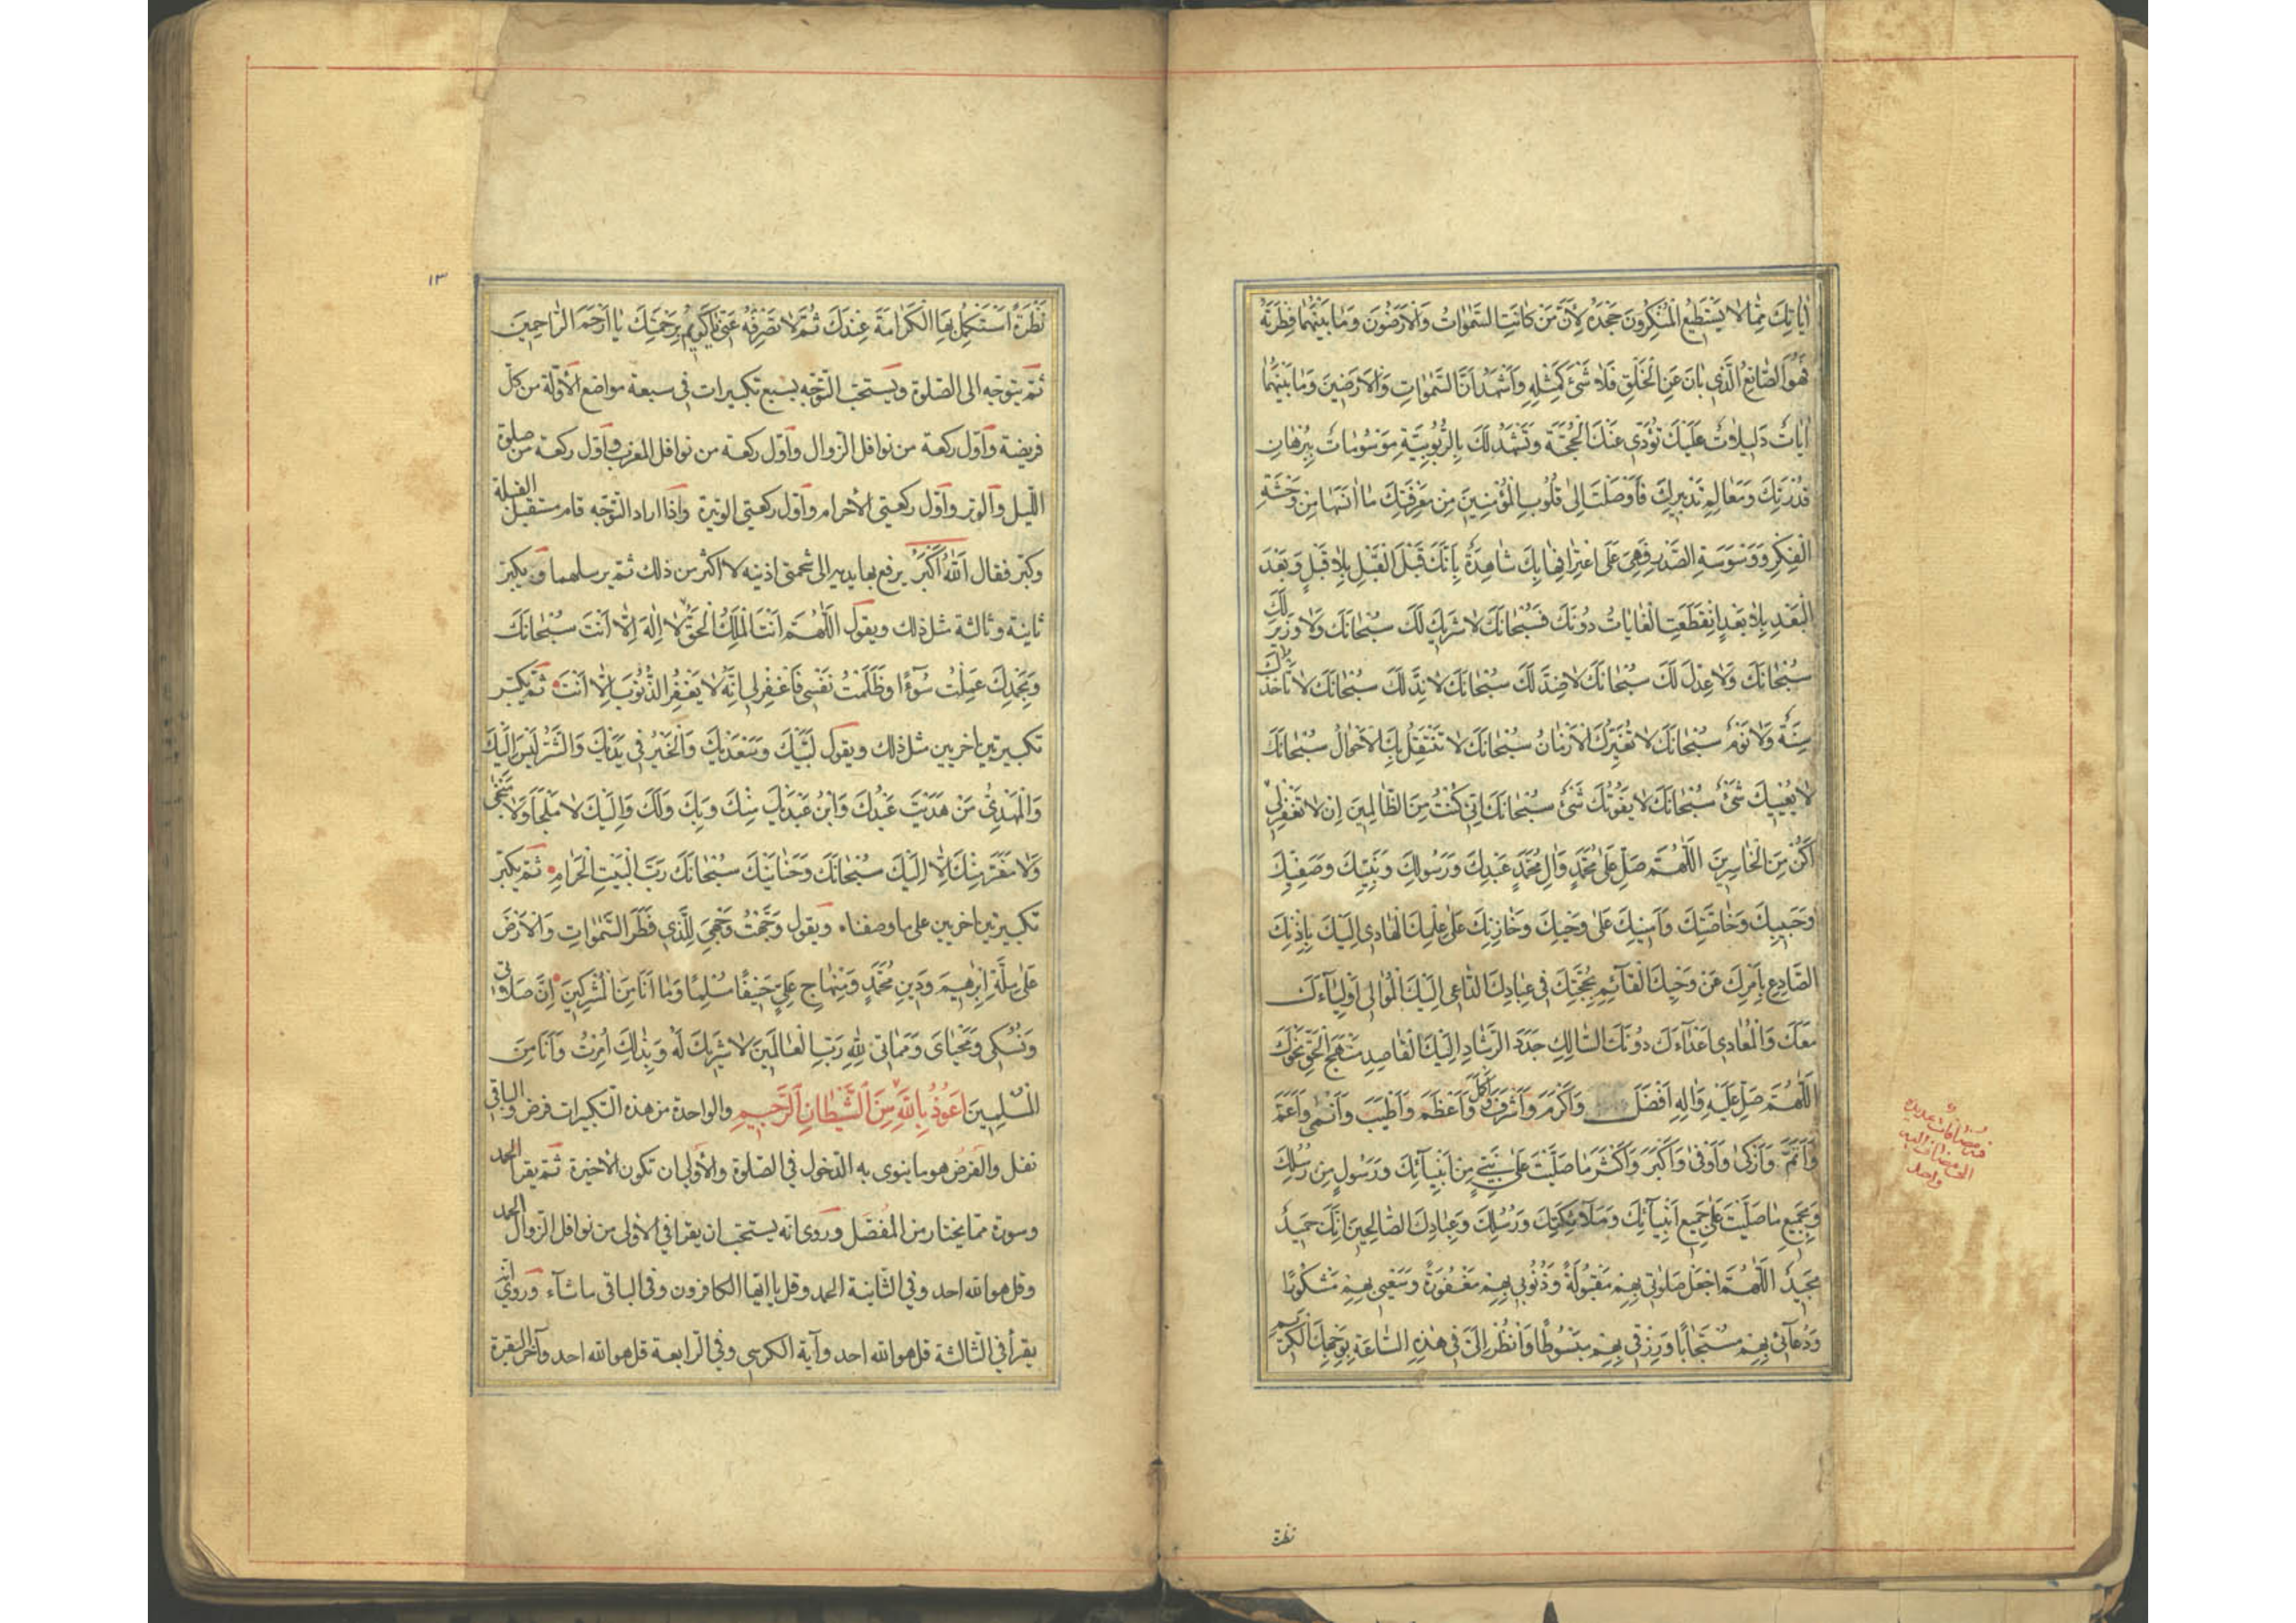 اٰيٰاتِكَ مِمّٰا لاٰ يَسْتَطيعُ الْمُنْكِرُونَ جَحْدَهُ لِاَنَّ مَنْ كٰانَتِ السَّمٰوٰاتُ وَالْاَرَضُونَ وَمٰا بَيْنَهُمٰا فِطْرَتَهُ
فَهُوَ الصّٰانِعُ الَّذي بٰانَ عَنِ الْخَلْقِ فَلاٰ شَيْءَ كَمِثْلِهِ وَاَشْهَدُ اَنَّ السَّمٰوٰاتِ وَالْاَرَضينَ وَمٰا بَيْنَهُمٰا
اٰيٰاتٌ دَليلاٰتٌ عَلَيْكَ تُؤَدّي عَنْكَ الْحُجَّةَ وَتَشْهَدُ لَكَ بِالرُّبُوبِيَّةِ مَوْسُومٰاتٌ بِبُرْهٰانِ
قُدْرَتِكَ وَمَعٰالِمِ تَدْبيرِكَ فَاَوْصَلْتَ اِلىٰ قُلُوبِ الْمُؤْمِنينَ مِنْ مَعْرِفَتِكَ مٰا اٰنَسَهٰا مِنْ وَحْشَةِ
الْفِكْرِ وَوَسْوَسَةِ الصَّدْرِ فَهِيَ عَلَى اعْتِرٰافِهٰا بِكَ شٰاهِدَةٌ بِاَنَّكَ قَبْلَ الْقَبْلِ بِلاٰ قَبْلٍ وَبَعْدَ
الْبَعْدِ بِلاٰ بَعْدٍ انْقَطَعَتِ الْغٰايٰاتُ دُونَكَ فَسُبْحٰانَكَ لاٰ شَريكَ لَكَ سُبْحٰانَكَ وَلاٰ وَزيرَ لَكَ
سُبْحٰانَكَ وَلاٰ عِدْلَ لَكَ سُبْحٰانَكَ لاٰ ضِدَّ لَكَ سُبْحٰانَكَ لاٰ نِدَّ لَكَ سُبْحٰانَكَ لاٰ تَأْخُذُكَ
سِنَةٌ وَلاٰ نَوْمٌ سُبْحٰانَكَ لاٰ تُغَيِّرُكَ الْاَزْمٰانُ سُبْحٰانَكَ لاٰ تَنْتَقِلُ بِكَ الْاَحْوٰالُ سُبْحٰانَكَ
لاٰ يُعْييكَ شَيْءٌ سُبْحٰانَكَ لاٰ يَفُوتُكَ شَيْءٌ سُبْحٰانَكَ اِنّي كُنْتُ مِنَ الظّٰالِمينَ اِنْ لاٰ تَغْفِرْ لي
اَكُنْ مِنَ الْخٰاسِرينَ اَللّٰهُمَّ صَلِّ عَلىٰ مُحَمَّدٍ وَاٰلِ مُحَمَّدٍ عَبْدِكَ وَرَسُولِكَ وَنَبِيِّكَ وَصَفِيِّكَ
وَحَبيبِكَ وَخٰاصَّتِكَ وَاَمينِكَ عَلىٰ وَحْيِكَ وَخٰازِنِكَ عَلىٰ عِلْمِكَ الْهٰادي اِلَيْكَ بِاِذْنِكَ
الصّٰادِعِ بِاَمْرِكَ عَنْ وَحْيِكَ الْقٰآئِمِ بِحُجَّتِكَ في عِبٰادِكَ الدّٰاعي اِلَيْكَ الْمُوٰالي اَوْلِيٰآءَكَ
مَعَكَ وَالْمُعٰادي اَعْدٰآءَكَ دُونَكَ السّٰالِكِ جَدَدَ الرَّشٰادِ اِلَيْكَ الْقٰاصِدِ مَنْهَجَ الْحَقِّ نَحْوَكَ
اَللّٰهُمَّ صَلِّ عَلَيْهِ وَاٰلِهِ اَفْضَلَ وَاَكْرَمَ وَاَشْرَفَ وَاَكْمَلَ وَاَعْظَمَ وَاَطْيَبَ وَاَنْمىٰ وَاَعَمَّ
وَاَتَمَّ وَاَزْكىٰ وَاَوْفىٰ وَاَكْبَرَ وَاَكْثَرَ مٰا صَلَّيْتَ عَلىٰ نَبِيٍّ مِنْ اَنْبِيٰآئِكَ وَرَسُولٍ مِنْ رُسُلِكَ
وَبِجَميعِ مٰا صَلَّيْتَ عَلىٰ جَميعِ اَنْبِيٰآئِكَ وَمَلاٰئِكَتِكَ وَرُسُلِكَ وَعِبٰادِكَ الصّٰالِحينَ اِنَّكَ حَميدٌ
مَجيدٌ اَللّٰهُمَّ اجْعَلْ صَلَوٰاتي بِهِمْ مَقْبُولَةً وَذُنُوبي بِهِمْ مَغْفُورَةً وَسَعْيي بِهِمْ مَشْكُورًا
وَدُعٰآئي بِهِمْ مُسْتَجٰابًا وَرِزْقي بِهِمْ مَبْسُوطًا وَانْظُرْ اِلَيَّ في هٰذِهِ السّٰاعَةِ بِوَجْهِكَ الْكَريمِ
نظرة
١٣
نَظْرَةً اَسْتَكْمِلُ بِهَا الْكَرٰامَةَ عِنْدَكَ ثُمَّ لاٰ تَصْرِفْهُ عَنّي يٰا كَريمُ بِرَحْمَتِكَ يٰا اَرْحَمَ الرّٰاحِمينَ
ثمّ يتوجّه الى الصّلوة ويستحبّ التّوجّه بسبع تكبيرات في سبعة مواضع الأوّلة من كلّ
فريضة وأوّل ركعة من نوافل الزوال وأوّل ركعة من نوافل المغرب وأوّل ركعة من صلوة
اللّيل والوتر وأوّل ركعتي الأحرام وأوّل ركعتي الوتيرة واذا اراد التّوجّه قام مستقبل القبلة
وكبّر فقال اَللّٰهُ اَكْبَرُ يرفع بها يديه الى شحمتي اذنيه لا اكثر من ذلك ثمّ يرسلهما ويكبّر
ثانية وثالثة مثل ذلك ويقول اَللّٰهُمَّ اَنْتَ الْمَلِكُ الْحَقُّ لاٰ اِلٰهَ اِلّٰا اَنْتَ سُبْحٰانَكَ
وَبِحَمْدِكَ عَمِلْتُ سُوٓءًا وَظَلَمْتُ نَفْسي فَاغْفِرْ لي اِنَّهُ لاٰ يَغْفِرُ الذُّنُوبَ اِلّٰا اَنْتَ ثمّ يكبّر
تكبيرتين اخريين مثل ذلك ويقول لَبَّيْكَ وَسَعْدَيْكَ وَالْخَيْرُ في يَدَيْكَ وَالشَّرُّ لَيْسَ اِلَيْكَ
وَالْمَهْدِيُّ مَنْ هَدَيْتَ عَبْدُكَ وَابْنُ عَبْدَيْكَ مِنْكَ وَبِكَ وَلَكَ وَاِلَيْكَ لاٰ مَلْجَأَ وَلاٰ مَنْجىٰ
وَلاٰ مَفَرَّ مِنْكَ اِلّٰا اِلَيْكَ سُبْحٰانَكَ وَحَنٰانَيْكَ سُبْحٰانَكَ رَبَّ الْبَيْتِ الْحَرٰامِ ثمّ يكبّر
تكبيرتين اخريين على ما وصفناه ويقول وَجَّهْتُ وَجْهِيَ لِلَّذي فَطَرَ السَّمٰوٰاتِ وَالْاَرْضَ
عَلىٰ مِلَّةِ اِبْرٰهيمَ وَدينِ مُحَمَّدٍ وَمِنْهٰاجِ عَلِيٍّ حَنيفًا مُسْلِمًا وَمٰا اَنَا مِنَ الْمُشْرِكينَ اِنَّ صَلاٰتي
وَنُسُكي وَمَحْيٰايَ وَمَمٰاتي لِلّٰهِ رَبِّ الْعٰالَمينَ لاٰ شَريكَ لَهُ وَبِذٰلِكَ اُمِرْتُ وَاَنَا مِنَ
الْمُسْلِمينَ اَعُوذُ بِاللّٰهِ مِنَ الشَّيْطٰانِ الرَّجيمِ والواحدة من هذه التّكبيرات فرض والباقي
نفل والفرض هو ما ينوي به الدّخول في الصّلوة والأولى ان تكون الأخيرة ثمّ يقرا الحمد
وسورة ممّا يختار من المفصّل وروى انه يستحبّ ان يقرا في الأولى من نوافل الزوال الحمد
وقل هو الله احد وفي الثّانية الحمد وقل يا ايّها الكافرون وفي الباقي ما شآء وروي انّه
يقرأ في الثّالثة قل هو الله احد وآية الكرسي وفي الرّابعة قل هو الله احد وآخر البقرة